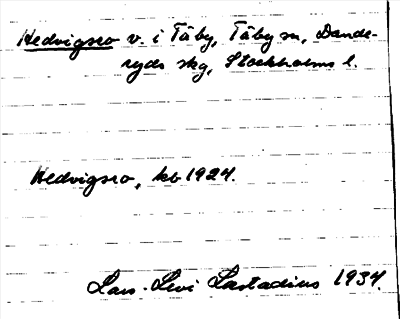 Hedvigsro v. i Täby, Täby sn, Dande-
ryds skg, Stockholms l.
Hedvigsro, kb 1924.
Lars-Levi Læstadius 1934.